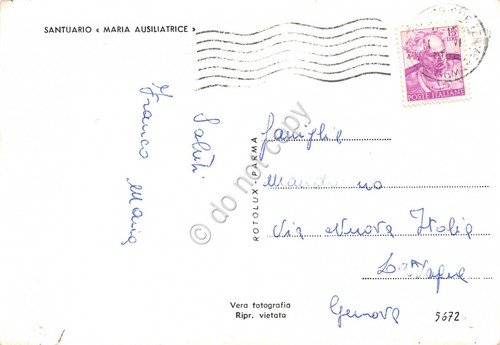 SANTUARIO « MARIA AUSILIATRICE »
15
POSTE ITALIANE
Saluti
Franco Maria
ROTOLUX - PARMA
Famiglia
Via Nuova Italia
Lavagna
Genova
Vera fotografia
Ripr. vietata
5672
© do not copy